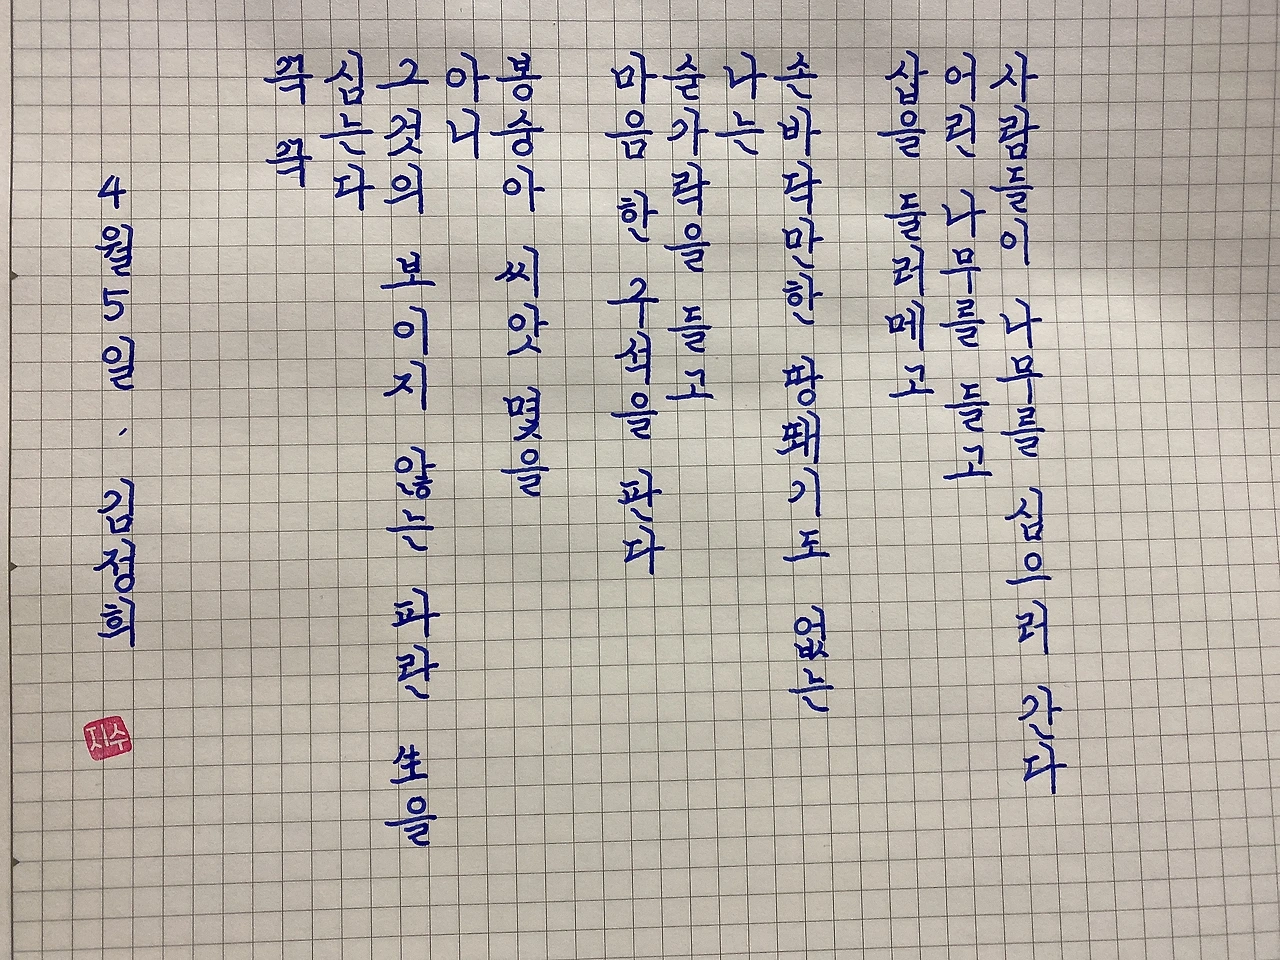 사람들이 나무를 심으러 간다
어린 나무를 들고
삽을 둘러메고
손바닥만한 땅뙈기도 없는
나는
숟가락을 들고
마음 한 구석을 판다
봉숭아 씨앗 몇을
아니
그것의 보이지 않는 파란 生을
심는다
꾹 꾹
4월 5일、 심정희
지수